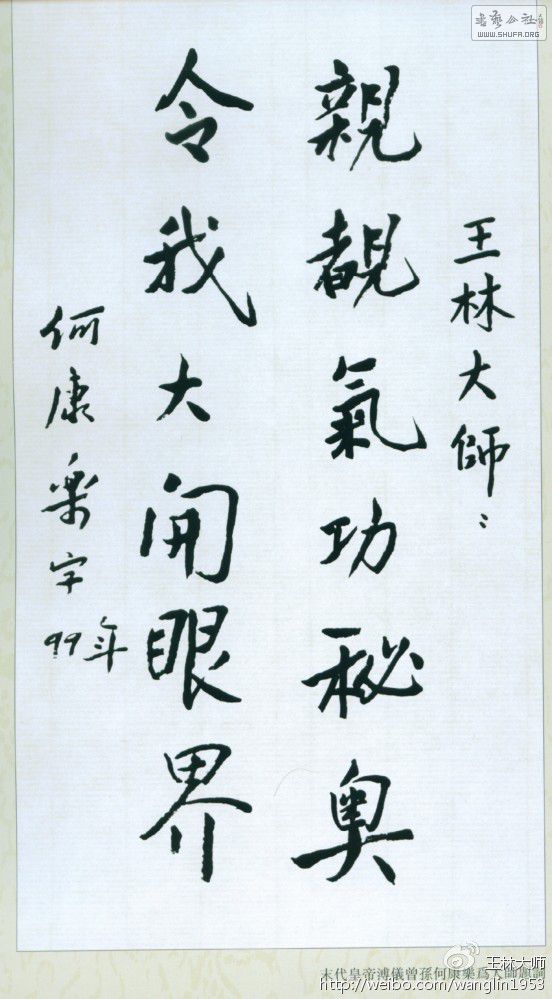 書法公社
WWW.SHUFA.ORG
王林大師:
親覩氣功秘奧
令我大開眼界
何康樂字
99年
末代皇帝溥儀曾孫何康樂爲大師題詞
王林大师
http://weibo.com/wanglin1953